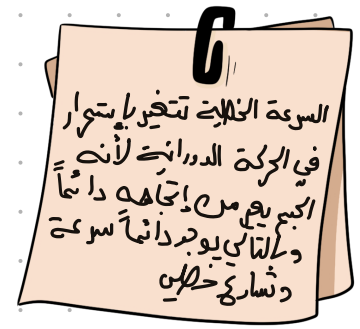 السرعة الخطية تتغير بإستمرار
في الحركة الدورانية لأنه
الجسم يغير من إتجاهه دائماً
وبالتالي يوجد دائماً سرعة
وتسارع خطي